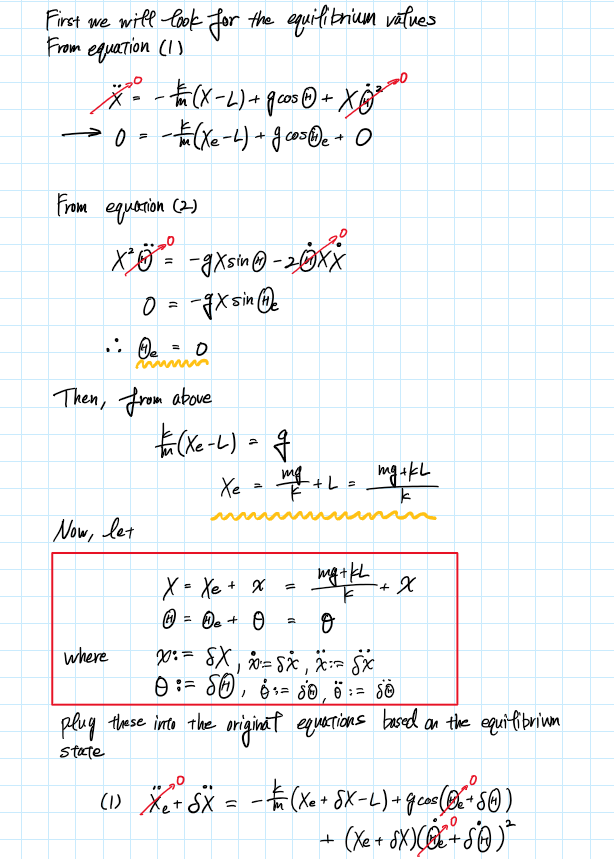 First we will look for the equilibrium values
From equation (1)
Ẍ = -k/m(X-L) + g cosΘ + XΘ̇² →0 →0
→ 0 = -k/m(Xe-L) + g cosΘe + 0
From equation (2)
X²Θ̈ = -gX sinΘ - 2Θ̇XẊ →0 →0
0 = -gX sinΘe
∴ Θe = 0
Then, from above
k/m(Xe-L) = g
Xe = mg/k + L = mg+kL/k
Now, let
X = Xe + x = mg+kL/k + x
Θ = Θe + θ = θ
where x := δX, ẋ := δẊ, ẍ := δẌ
θ := δΘ, θ̇ := δΘ̇, θ̈ := δΘ̈
plug these into the original equations based on the equilibrium
state
(1) Ẍe + δẌ = -k/m(Xe + δX - L) + g cos(Θe + δΘ) →0 →0
+ (Xe + δX)(Θ̇e + δΘ̇)² →0